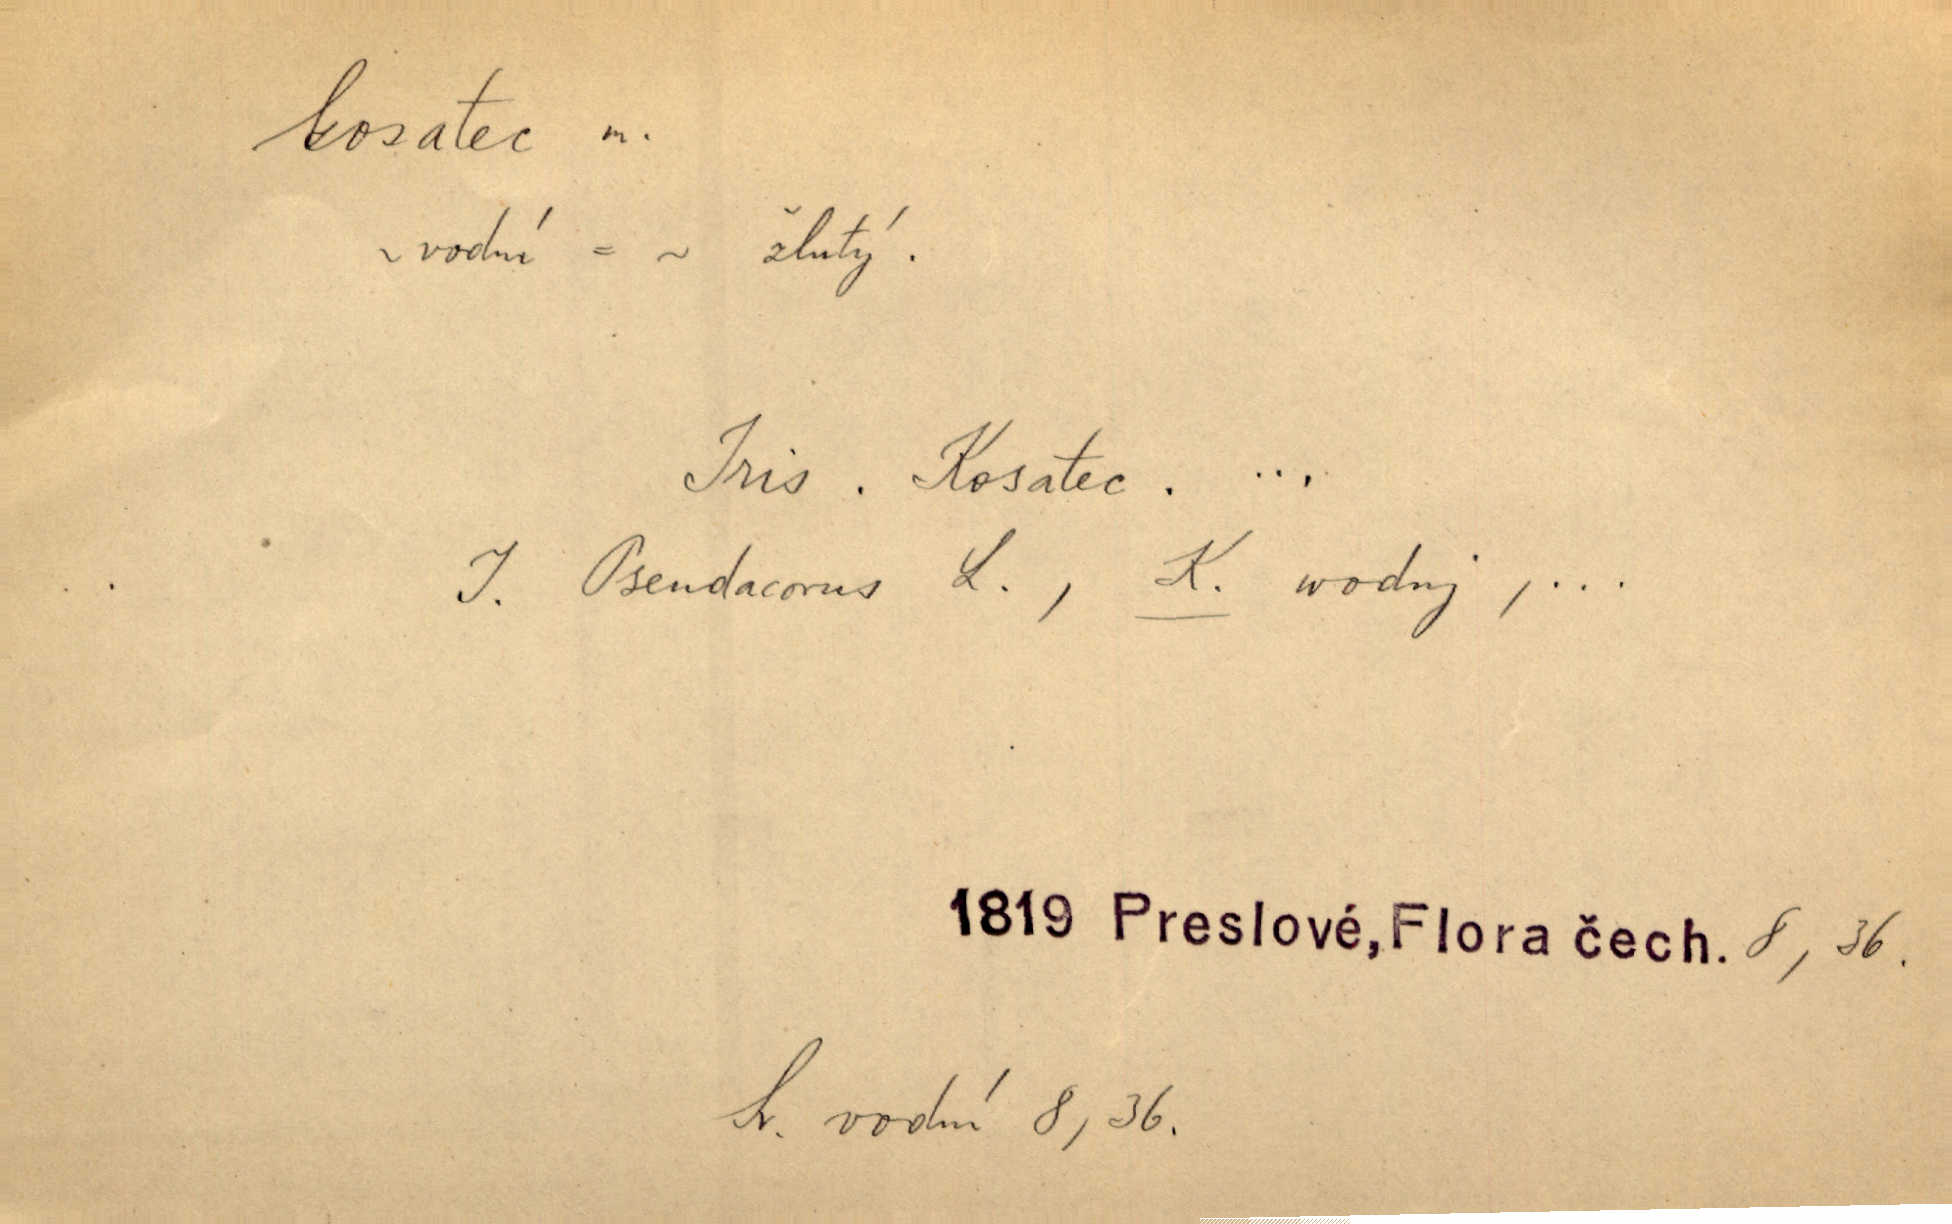 kosatec m.
~ vodní = ~ žlutý.
Iris. Kosatec. ...
I. Pseudacorus L., K. wodnj, ...
1819 Preslové, Flora čech. 8, 36.
k. vodní 8, 36.